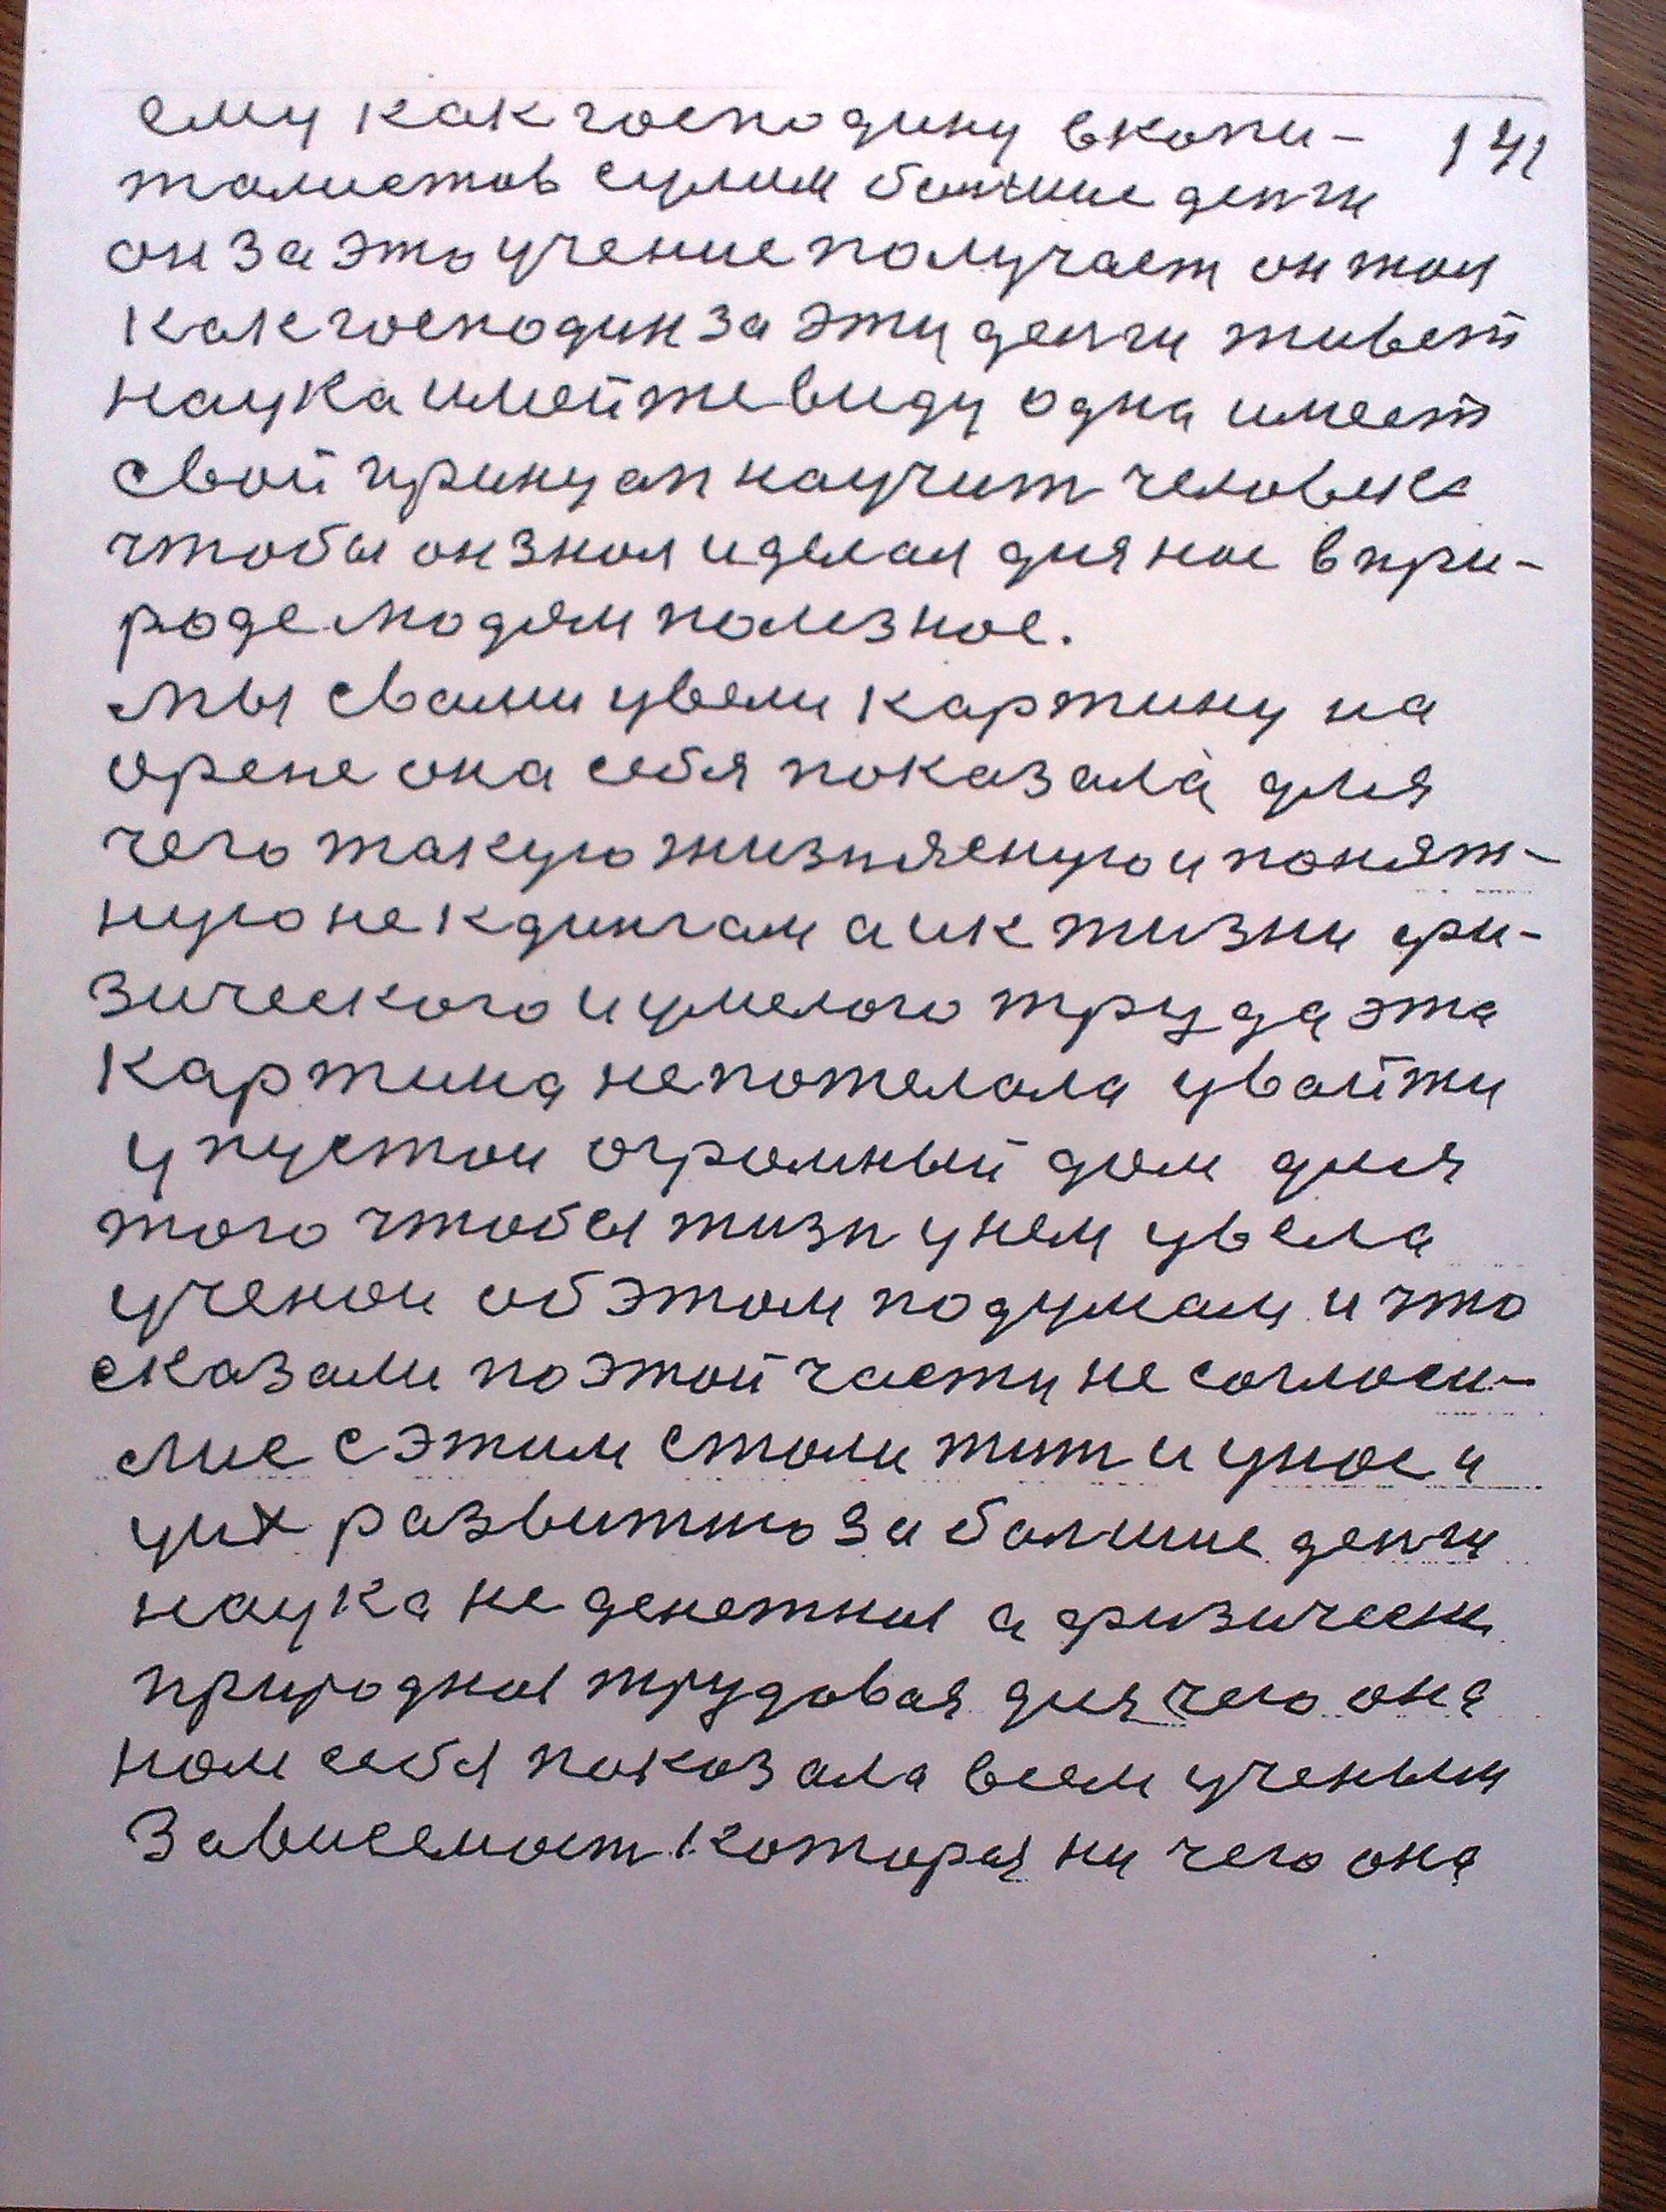 ему как господину вкопи- 141
толистов сулим болшие денги
он за это учение получает он жол
как господин за эти денги живет
наука имейте ввиду одна имеет
свой принцап научит человека
чтобы он знол и делал для нас в при-
роде людям полезное.
мы свами увели картину на
орене она себя показала для
чего такую жизняеную и понят-
ную не к дингам а ик жизни фи-
зического и умелого труда эта
картина непожелала увайти
у пустои огромный дом для
того чтобы жизн унем увела
ученои об этом подумали и что
сказали по этой части не согласи-
лис с этим стали жит и унос и
уих развитию за болшие денги
наука не денежная а физическ
природная трудовая для чего она
ном себя показала всем ученым
Зависемост которая ни чего она